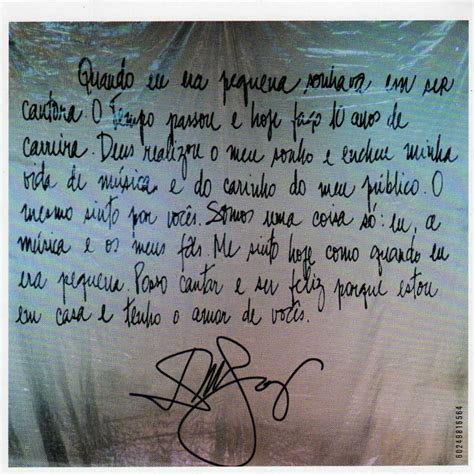 Quando eu era pequena sonhava em ser
cantora. O Tempo passou e hoje faço 10 anos de
carreira. Deus realizou o meu sonho e encheu minha
vida de música e do carinho do meu público. O
mesmo sinto por vocês. Somos uma coisa só: eu, a
música e os meus fãs. Me sinto hoje como quando eu
era pequena. Posso cantar e ser feliz porque estou
em casa e tenho o amor de vocês.
60249816564